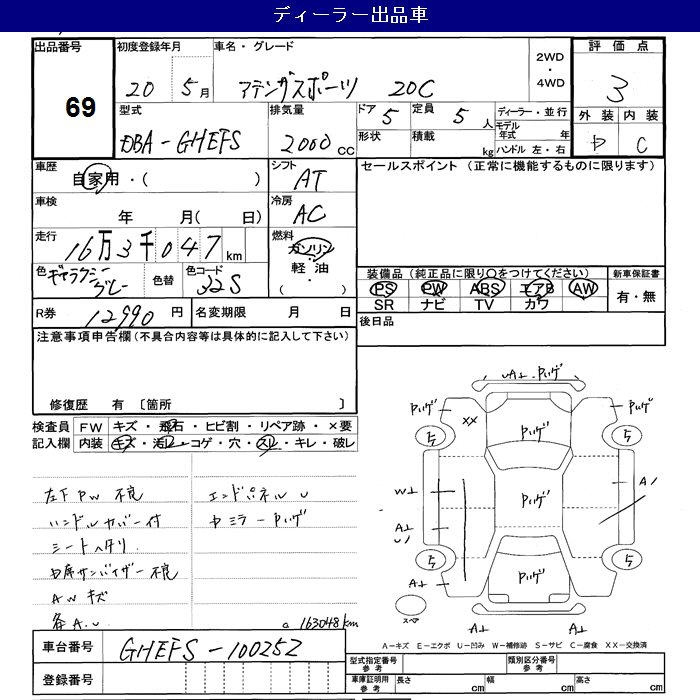 ディーラー出品車
出品番号 69
初度登録年月 20 5月
車名・グレード アテンザスポーツ 20C
2WD・4WD
評価点 3
外装 内装 C
型式 DBA-GHEFS
排気量 2000 cc
ドア 5 定員 5人
形状 積載 kg
ディーラー・並行
モデル年式 年
ハンドル 左・右
車歴 自家用・( )
シフト AT
セールスポイント (正常に機能するものに限ります)
車検 年 月( 日)
冷房 AC
走行 16万3千047km
燃料 ガソリン 軽油 ・( )
色 ギャラクシーグレー 色替 色コード 32S
装備品(純正品に限り○をつけてください) 新車保証書
PS PW ABS エアB AW 有・無
SR ナビ TV カワ
R券 12990円 名変期限 月 日
後日品
注意事項申告欄(不具合内容等は具体的に記入して下さい)
修復歴 有 〔箇所 〕
検査員 FW キズ・飛石・ヒビ割・リペア跡・×要
記入欄 内装 キズ・汚レ・コゲ・穴・スレ・キレ・破レ
左下PW 不良 エンドパネル U
ハンドルカバー付
シートヘタリ
サンバイザー不良
AWキズ
各A.U 163048km
UA⊥
XX
5 5
W⊥ A1
A⊥
5 5
A⊥
スペア
A⊥ A⊥
A-キズ E-エクボ U-凹み W-補修跡 S-サビ C-腐食 XX-交換済
車台番号 GHEFS-100252
登録番号
型式指定番号 参考 類別区分番号 参考
車庫証明用 参考 長さ cm 幅 cm 高さ cm